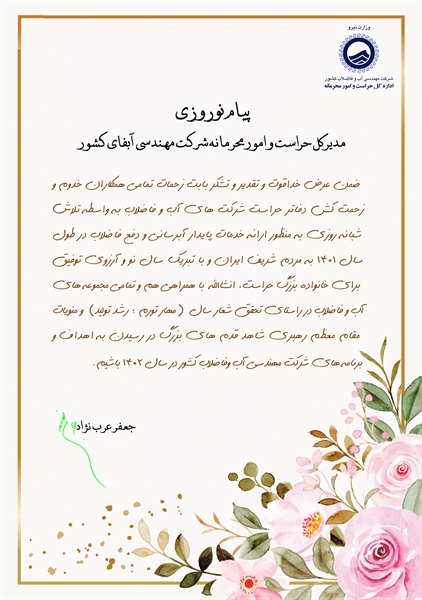 وزارت نیرو
شرکت مهندسی آب و فاضلاب کشور
اداره کل حراست و امور محرمانه
پیام نوروزی
مدیرکل حراست و امور محرمانه شرکت مهندسی آبفای کشور
ضمن عرض خداقوت و تقدیر و تشکر بابت زحمات تمامی همکاران خدوم و
زحمت کش دفاتر حراست شرکت های آب و فاضلاب به واسطه تلاش
شبانه روزی به منظور ارائه خدمات پایدار آبرسانی و دفع فاضلاب در طول
سال ۱۴۰۱ به مردم شریف ایران و با تبریک سال نو و آرزوی توفیق
برای خانواده بزرگ حراست، انشاالله با همراهی هم و تمامی مجموعه های
آب و فاضلاب در راستای تحقق شعار سال (مهار تورم ؛ رشد تولید) و منویات
مقام معظم رهبری شاهد قدم های بزرگ در رسیدن به اهداف و
برنامه های شرکت مهندسی آب وفاضلاب کشور در سال ۱۴۰۲ باشیم.
جعفر عرب نژاد